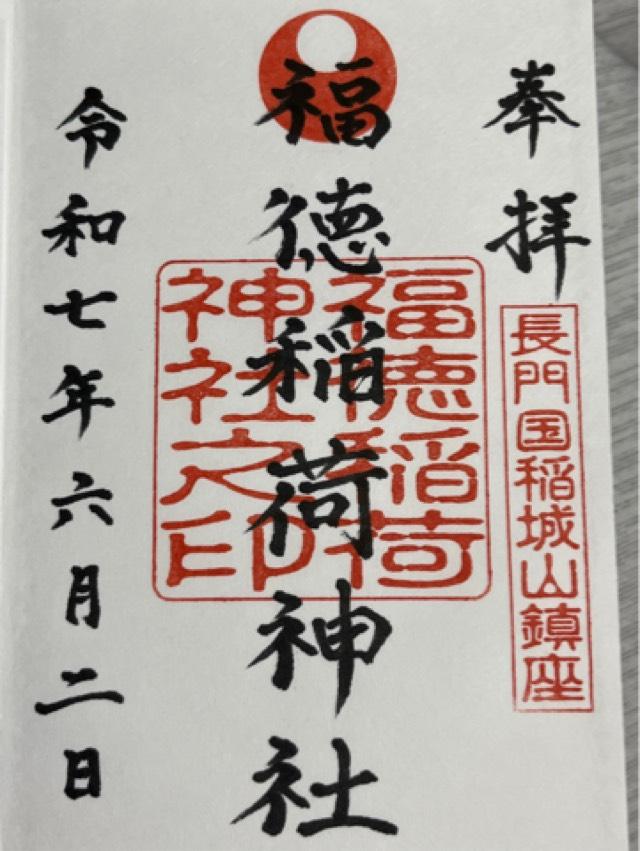 奉拝
長門国稲城山鎮座
福徳稲荷神社
福徳稲荷
神社之印
令和七年六月二日